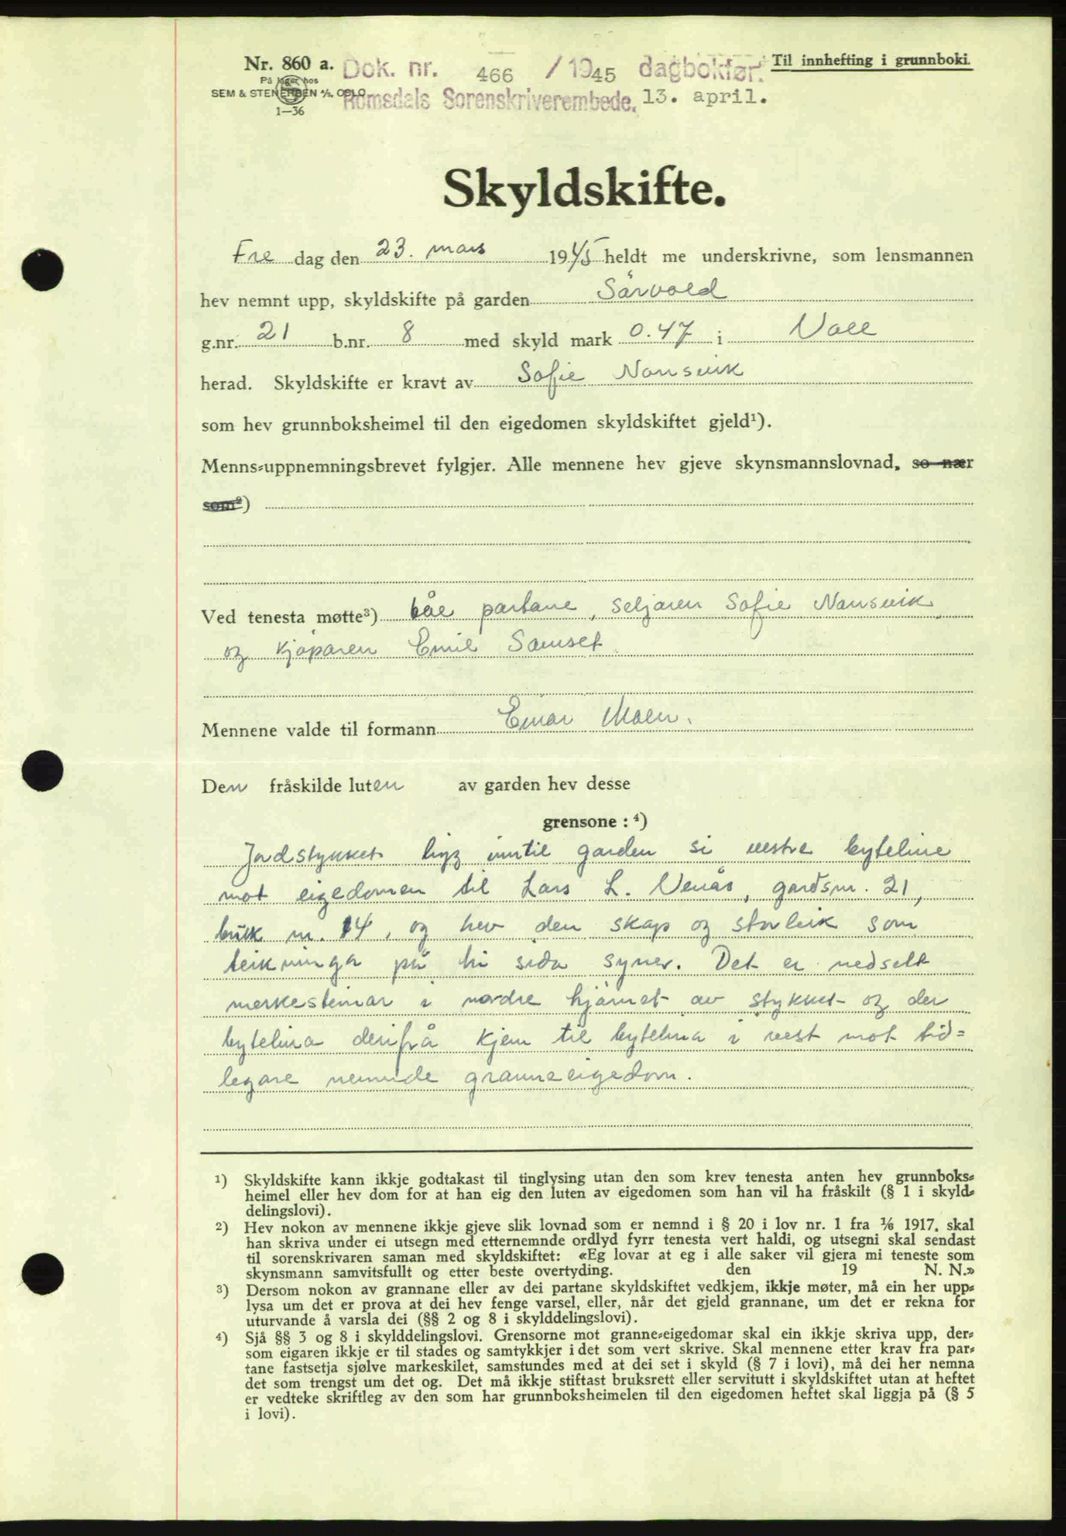 Nr. 860 a. Dok. nr. 466 / 1945 dagbokført Til innhefting i grunnboki.
På lager hos
SEM & STENERSEN A/S, OSLO Romsdals Sorenskriverembede. 13. april.
1—36
Skyldskifte.
Fre dag den 23. mars 1945 heldt me underskrivne, som lensmannen
hev nemnt upp, skyldskifte på garden Sörvold
g.nr. 21 b.nr. 8 med skyld mark 0.47 i Voll
herad. Skyldskifte er kravt av Sofie Nansvik
som hev grunnboksheimel til den eigedomen skyldskiftet gjeld¹).
Menns-uppnemningsbrevet fylgjer. Alle mennene hev gjeve skynsmannslovnad, so nær
som²)
Ved tenesta møtte³) båe partane, seljaren Sofie Nansvik
og kjöparen Emil Samset.
Mennene valde til formann Einar Moen.
Den fråskilde luten av garden hev desse
grensone : ⁴)
Jordstykket ligg inntil garden si vestre byteline
mot eigedomen til Lars L. Venås, gardsnr. 21,
bruk nr. 14, og hev den skap og storleik som
teikninga på hi sida syner. Det er nedsett
merkesteinar i nordre hjörnet av stykket og der
bytelina derifrå kjem til bytelina i vest mot tid-
legare nemnde granneeigedom.
¹) Skyldskifte kann ikkje godtakast til tinglysing utan den som krev tenesta anten hev grunnboks-
heimel eller hev dom for at han eig den luten av eigedomen som han vil ha fråskilt (§ 1 i skyld-
delingslovi).
²) Hev nokon av mennene ikkje gjeve slik lovnad som er nemnd i § 20 i lov nr. 1 fra 1/6 1917, skal
han skriva under ei utsegn med etternemnde ordlyd fyrr tenesta vert haldi, og utsegni skal sendast
til sorenskrivaren saman med skyldskiftet: «Eg lovar at eg i alle saker vil gjera mi teneste som
skynsmann samvitsfullt og etter beste overtyding. den 19 N. N.»
³) Dersom nokon av grannane eller av dei partane skyldskiftet vedkjem, ikkje møter, må ein her upp-
lysa um det er prova at dei hev fenge varsel, eller, når det gjeld grannane, um det er rekna for
uturvande å varsla dei (§§ 2 og 8 i skylddelingslovi).
⁴) Sjå §§ 3 og 8 i skylddelingslovi. Grensorne mot granne-eigedomar skal ein ikkje skriva upp, der-
som eigaren ikkje er til stades og samtykkjer i det som vert skrive. Skal mennene etter krav fra par-
tane fastsetja sjølve markeskilet, samstundes med at dei set i skyld (§ 7 i lovi), må dei her nemna
det som trengst um det og. Det må ikkje stiftast bruksrett eller servitutt i skyldskiftet utan at heftet
er vedteke skriftleg av den som har grunnboksheimelen til den eigedomen heftet skal liggja på (§ 5
i lovi).